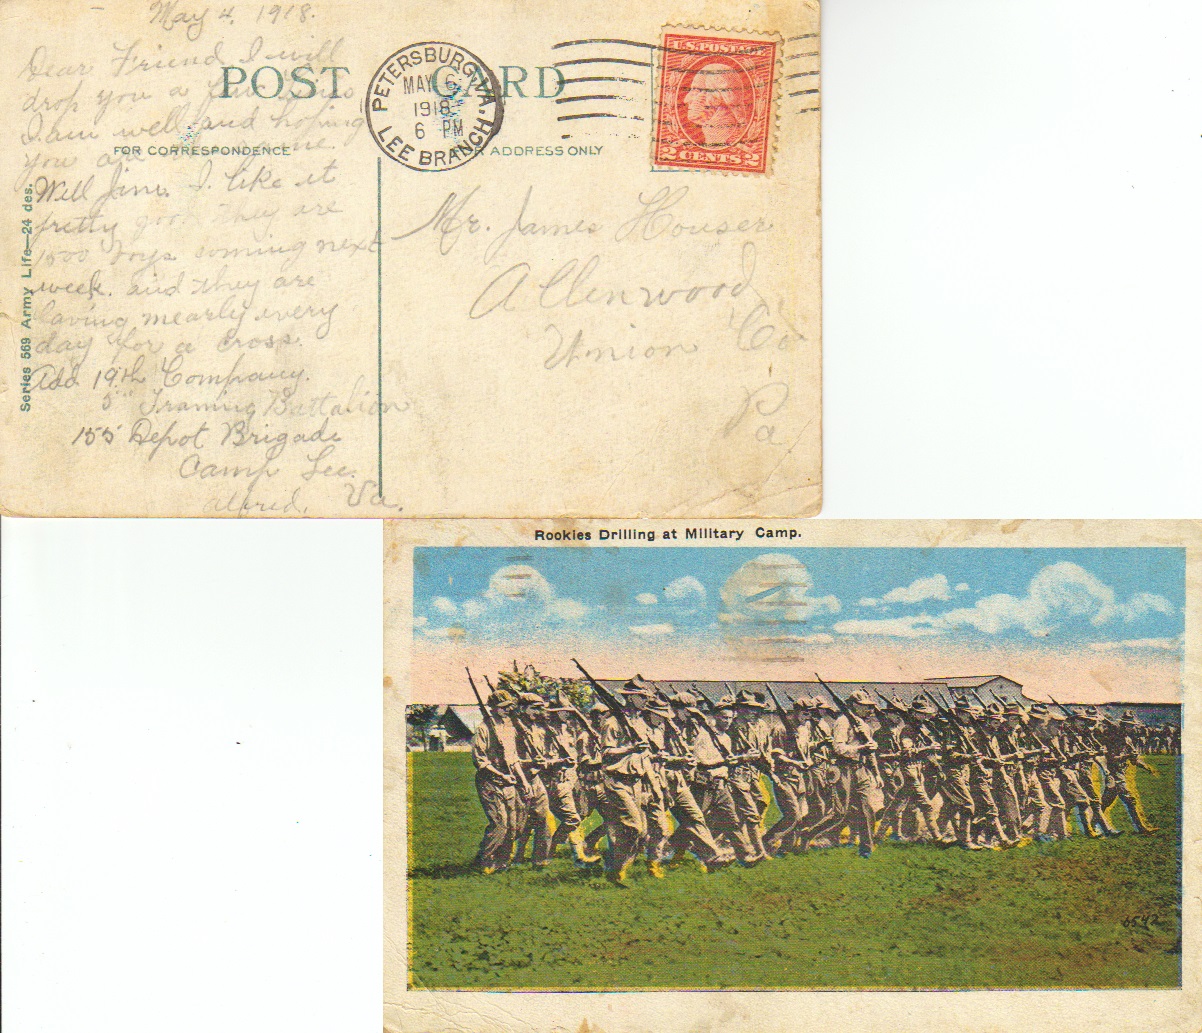 May 4, 1918.
Dear Friend I will
drop you a few lines
I am well and hoping
you are the same.
Well Jim. I like it
pretty good they are
1500 boys coming next
week. and they are
laving mearly every
day for a cross.
Add. 19th Company.
5" Training Battalion
155 Depot Brigade
Camp Lee.
Alfred. Va.
POST CARD
FOR CORRESPONDENCE
FOR ADDRESS ONLY
Series 569 Army Life—24 des.
PETERSBURG, VA.
MAY 6
1918
6 PM
LEE BRANCH
U.S. POSTAGE
2 CENTS 2
Mr. James Houser
Allenwood
Union Co
Pa
Rookies Drilling at Military Camp.
6542